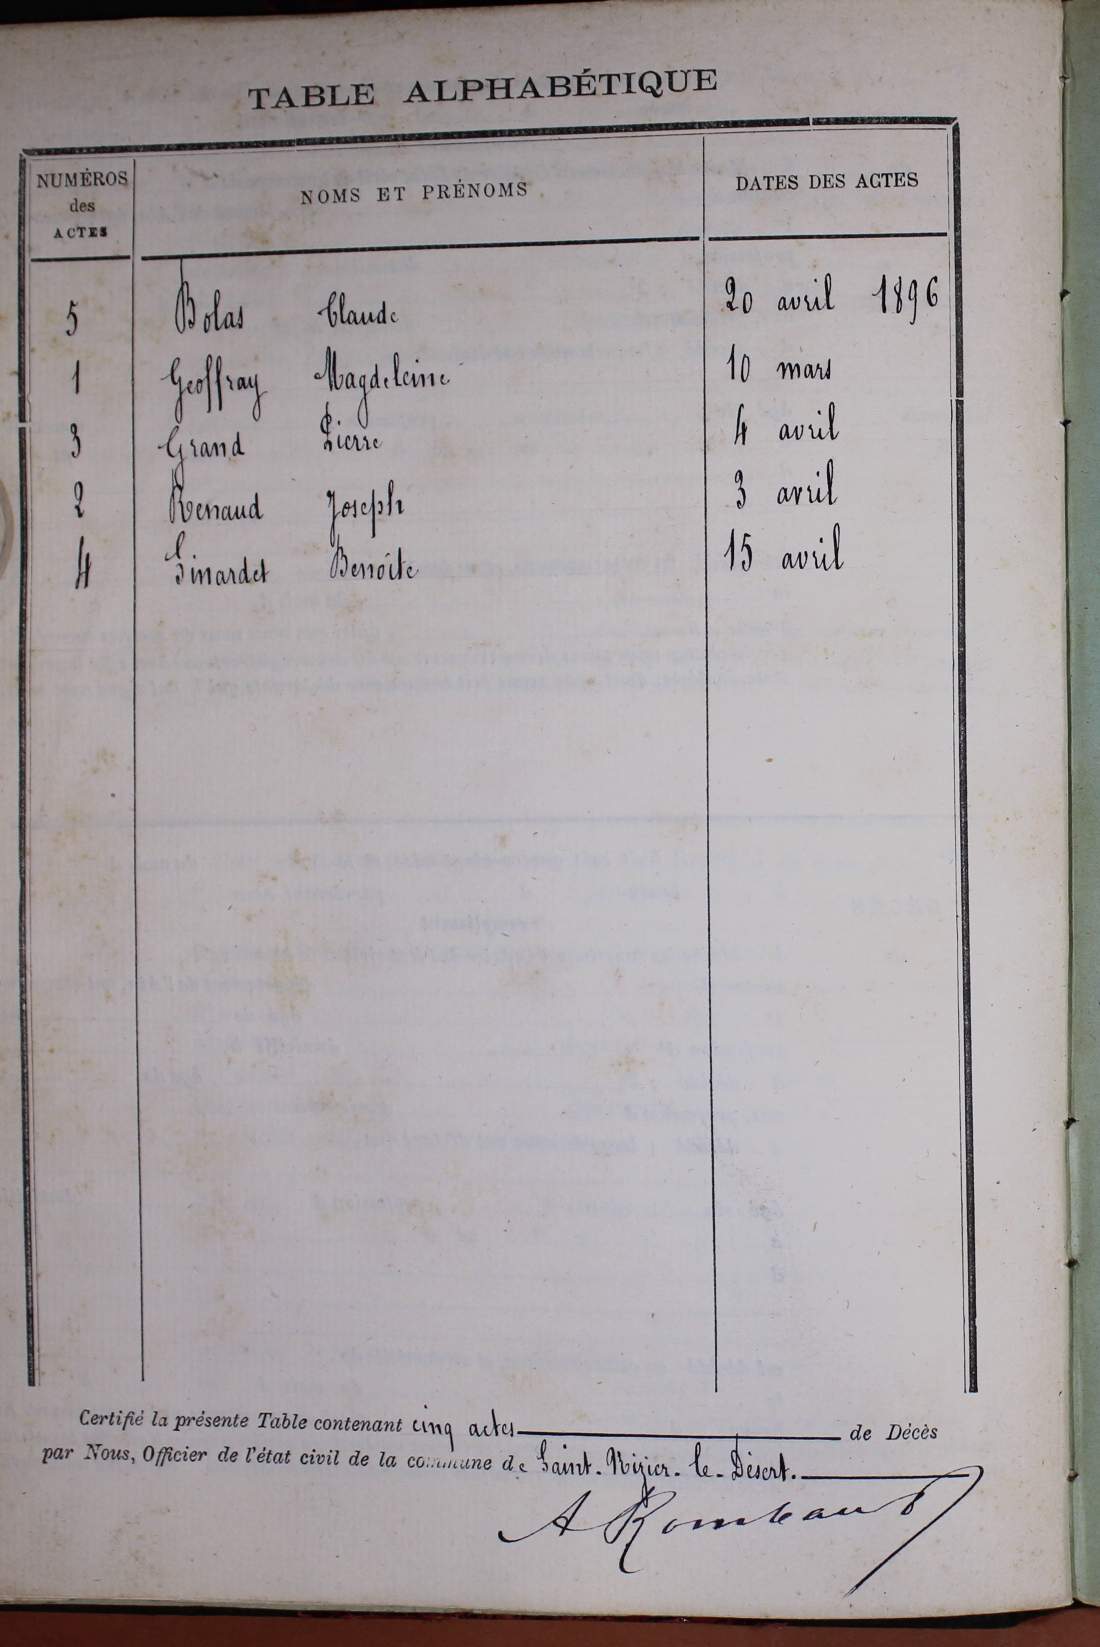 TABLE ALPHABÉTIQUE
NUMÉROS
des
ACTES
NOMS ET PRÉNOMS
DATES DES ACTES
5 Bolas Claude 20 avril 1896
1 Geoffray Magdeleine 10 mars
3 Grand Pierre 4 avril
2 Renaud Joseph 3 avril
4 Sinardet Benoîte 15 avril
Certifié la présente Table contenant cinq actes de Décès
par Nous, Officier de l'état civil de la commune de Saint-Nizier-le-Désert.
A Rombaud